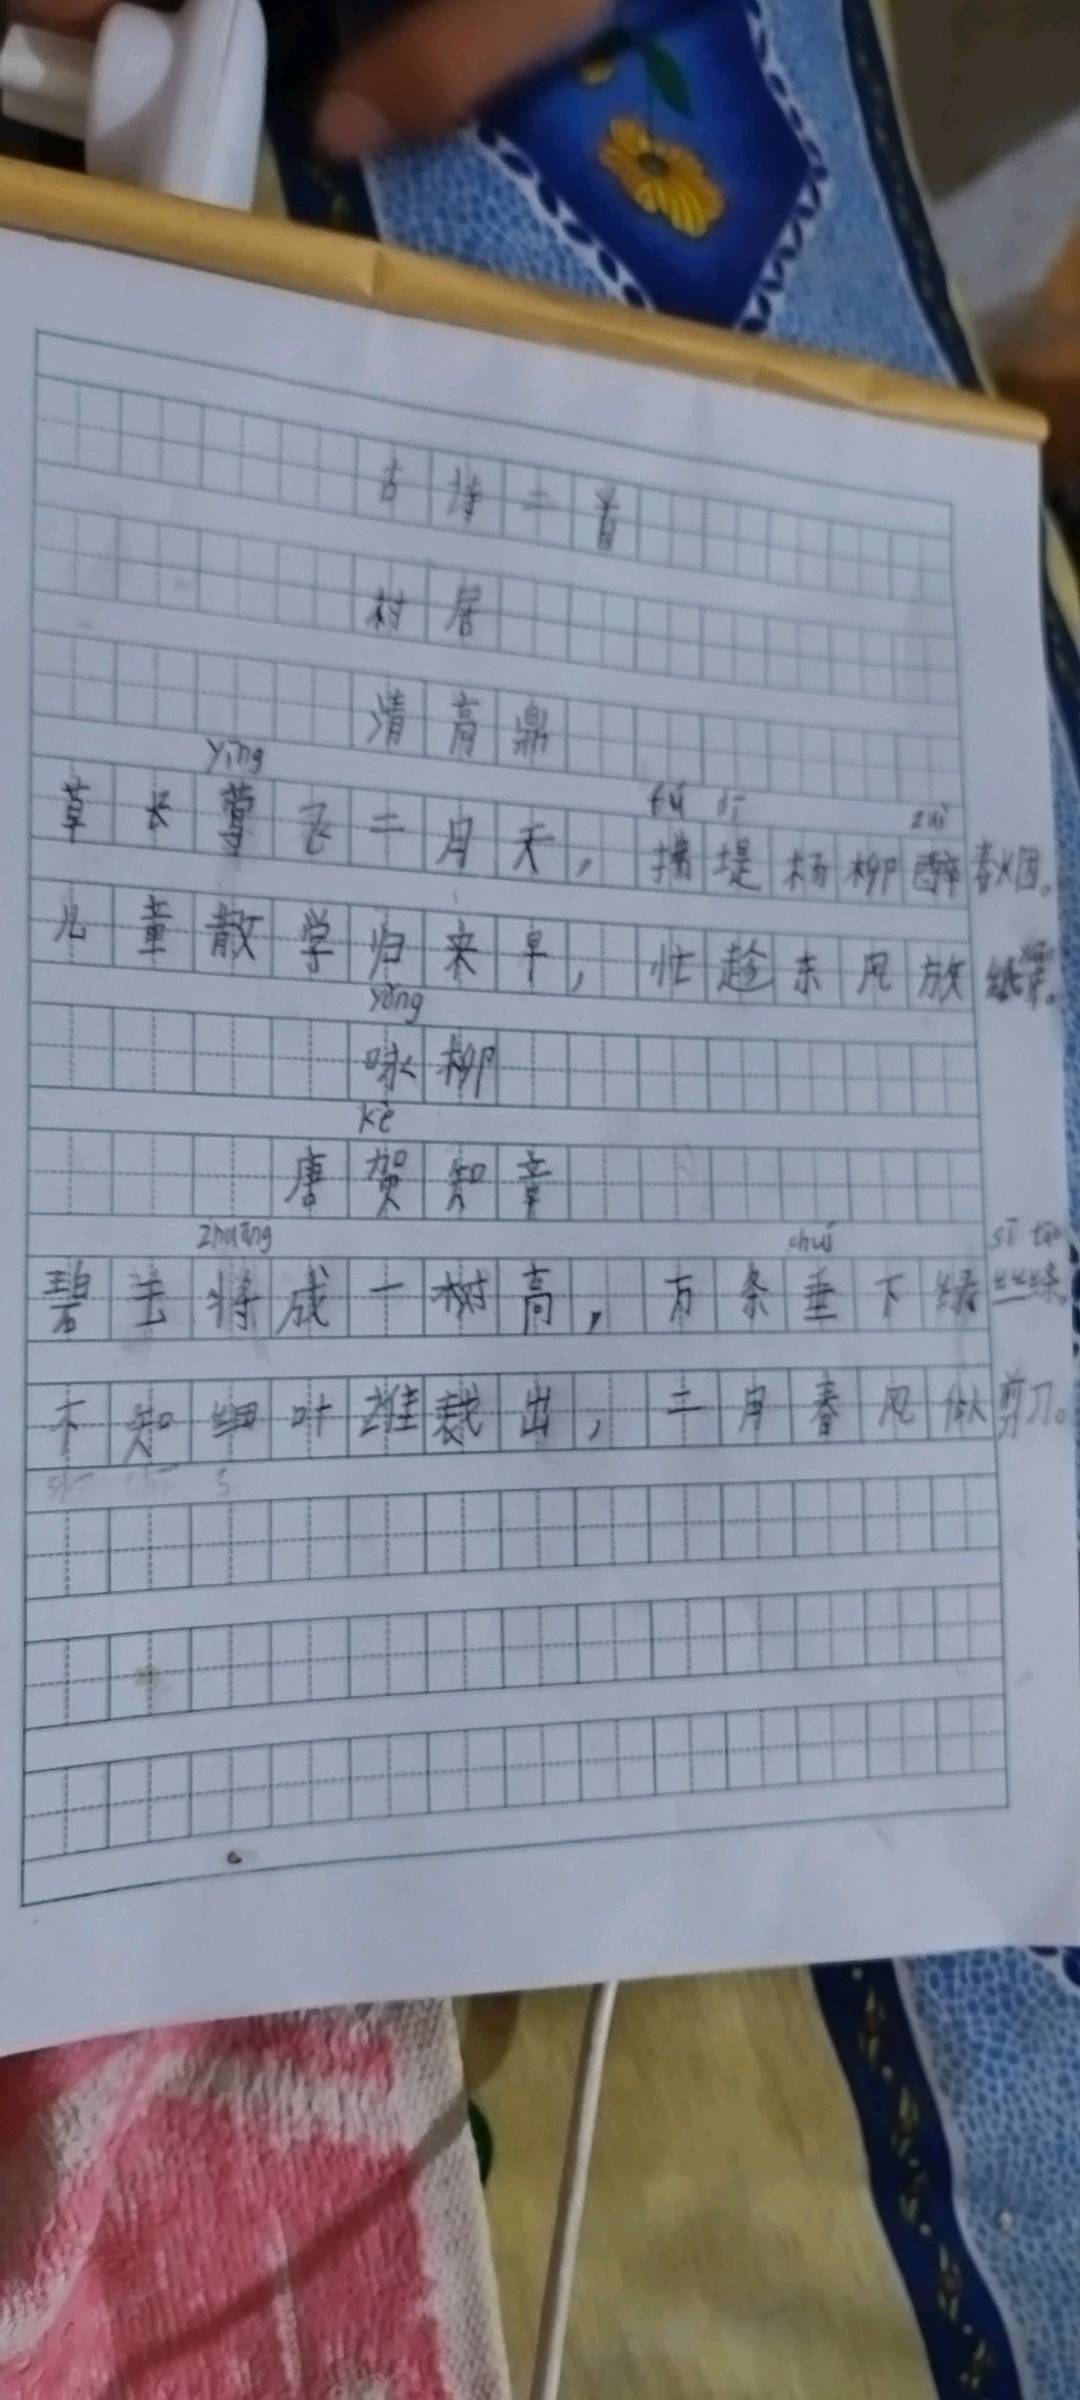 古诗二首
村居
清高鼎
yīng
草长莺飞二月天，拂堤杨柳醉春烟。
儿童散学归来早，忙趁东风放纸鸢。
yǒng
咏柳
kè
唐贺知章
zhuāng chuí sī tāo
碧玉将成一树高，万条垂下绿丝绦。
不知细叶谁裁出，二月春风似剪刀。